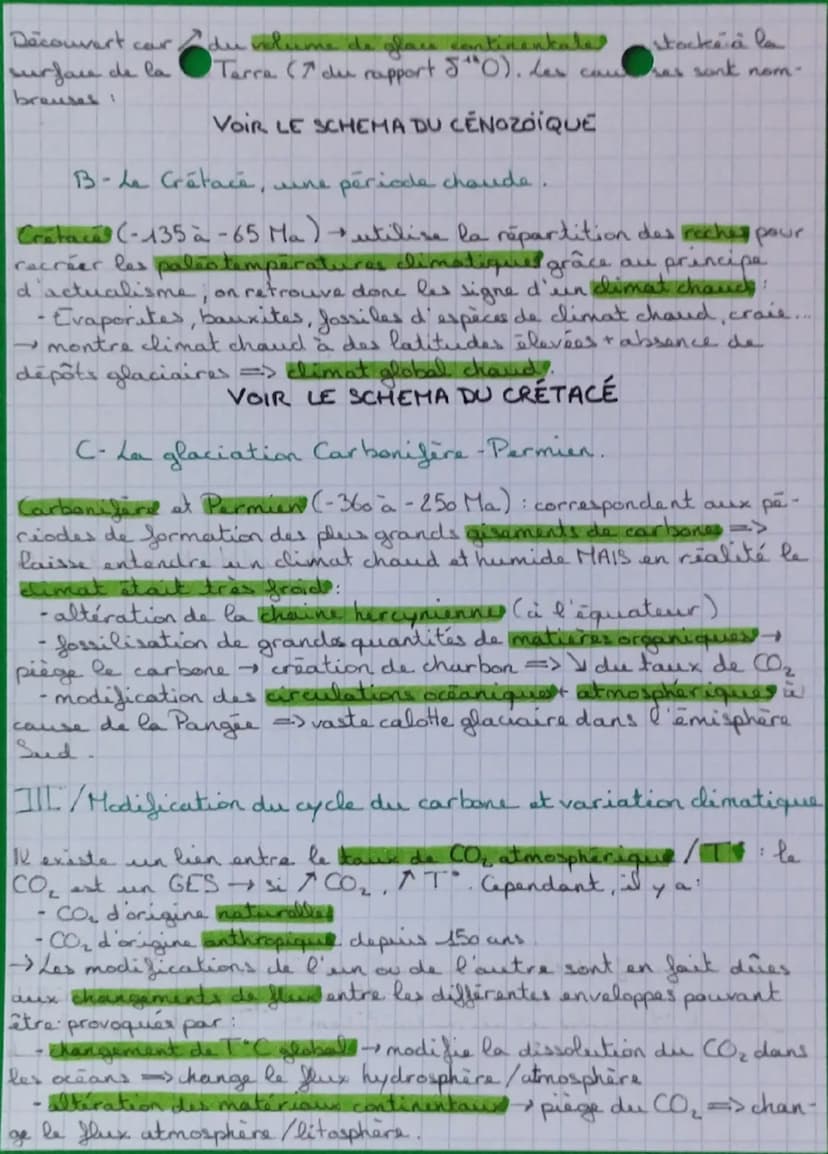 Découvert car ↗ du volume de glace continentales stockée à la
surface de la Terre (↗ du rapport δ¹⁸O). Les causes sont nom-
breuses :
VOIR LE SCHEMA DU CÉNOZOÏQUE
B - Le Crétacé, une période chaude.
Crétacé (-135 à -65 Ma) → utilise la répartition des roches pour
recréer les paléotempératures climatiques grâce au principe
d'actualisme, on retrouve donc les signe d'un climat chaud :
- Evaporites, bauxites, fossiles d'espèces de climat chaud, craie...
→ montre climat chaud à des latitudes élevées + absence de
dépôts glaciaires => climat global chaud.
VOIR LE SCHEMA DU CRÉTACÉ
C- La glaciation Carbonifère - Permien.
Carbonifère et Permien (-360 à -250 Ma) : correspondent aux pé-
riodes de formation des plus grands gisements de carbone =>
laisse entendre un climat chaud et humide MAIS en réalité le
climat était très froid :
- altération de la chaîne hercynienne (à l'équateur)
- fossilisation de grandes quantités de matières organiques →
piège le carbone → création de charbon => ↘ du taux de CO₂
- modification des circulations océaniques + atmosphériques à
cause de la Pangée => vaste calotte glaciaire dans l'émisphère
Sud.
III / Modification du cycle du carbone et variation climatique
Il existe un lien entre le taux de CO₂ atmosphérique / T° : le
CO₂ est un GES → si ↗ CO₂, ↗ T°. Cependant, il y a :
- CO₂ d'origine naturelles
- CO₂ d'origine anthropique depuis 150 ans
→ Les modifications de l'un ou de l'autre sont en fait dûes
aux changements de flux entre les différentes enveloppes pouvant
être provoqués par :
- changement de T°C global → modifie la dissolution du CO₂ dans
les océans => change le flux hydrosphère/atmosphère
- altération des matériaux continentaux → piège du CO₂ => chan-
ge le flux atmosphère/litosphère.